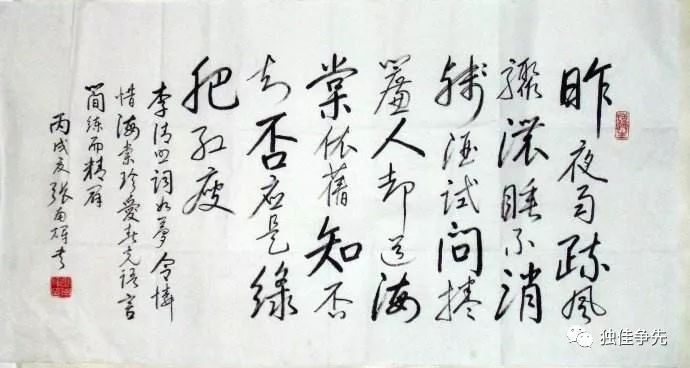 昨夜雨疏风
骤浓睡不消
残酒试问捲
簾人却道海
棠依舊知否
知否应是綠
肥红瘦
李清照词如梦令怜
惜海棠珍爱春光语言
简练而精辟
丙戌夏张南雄书
独佳争先